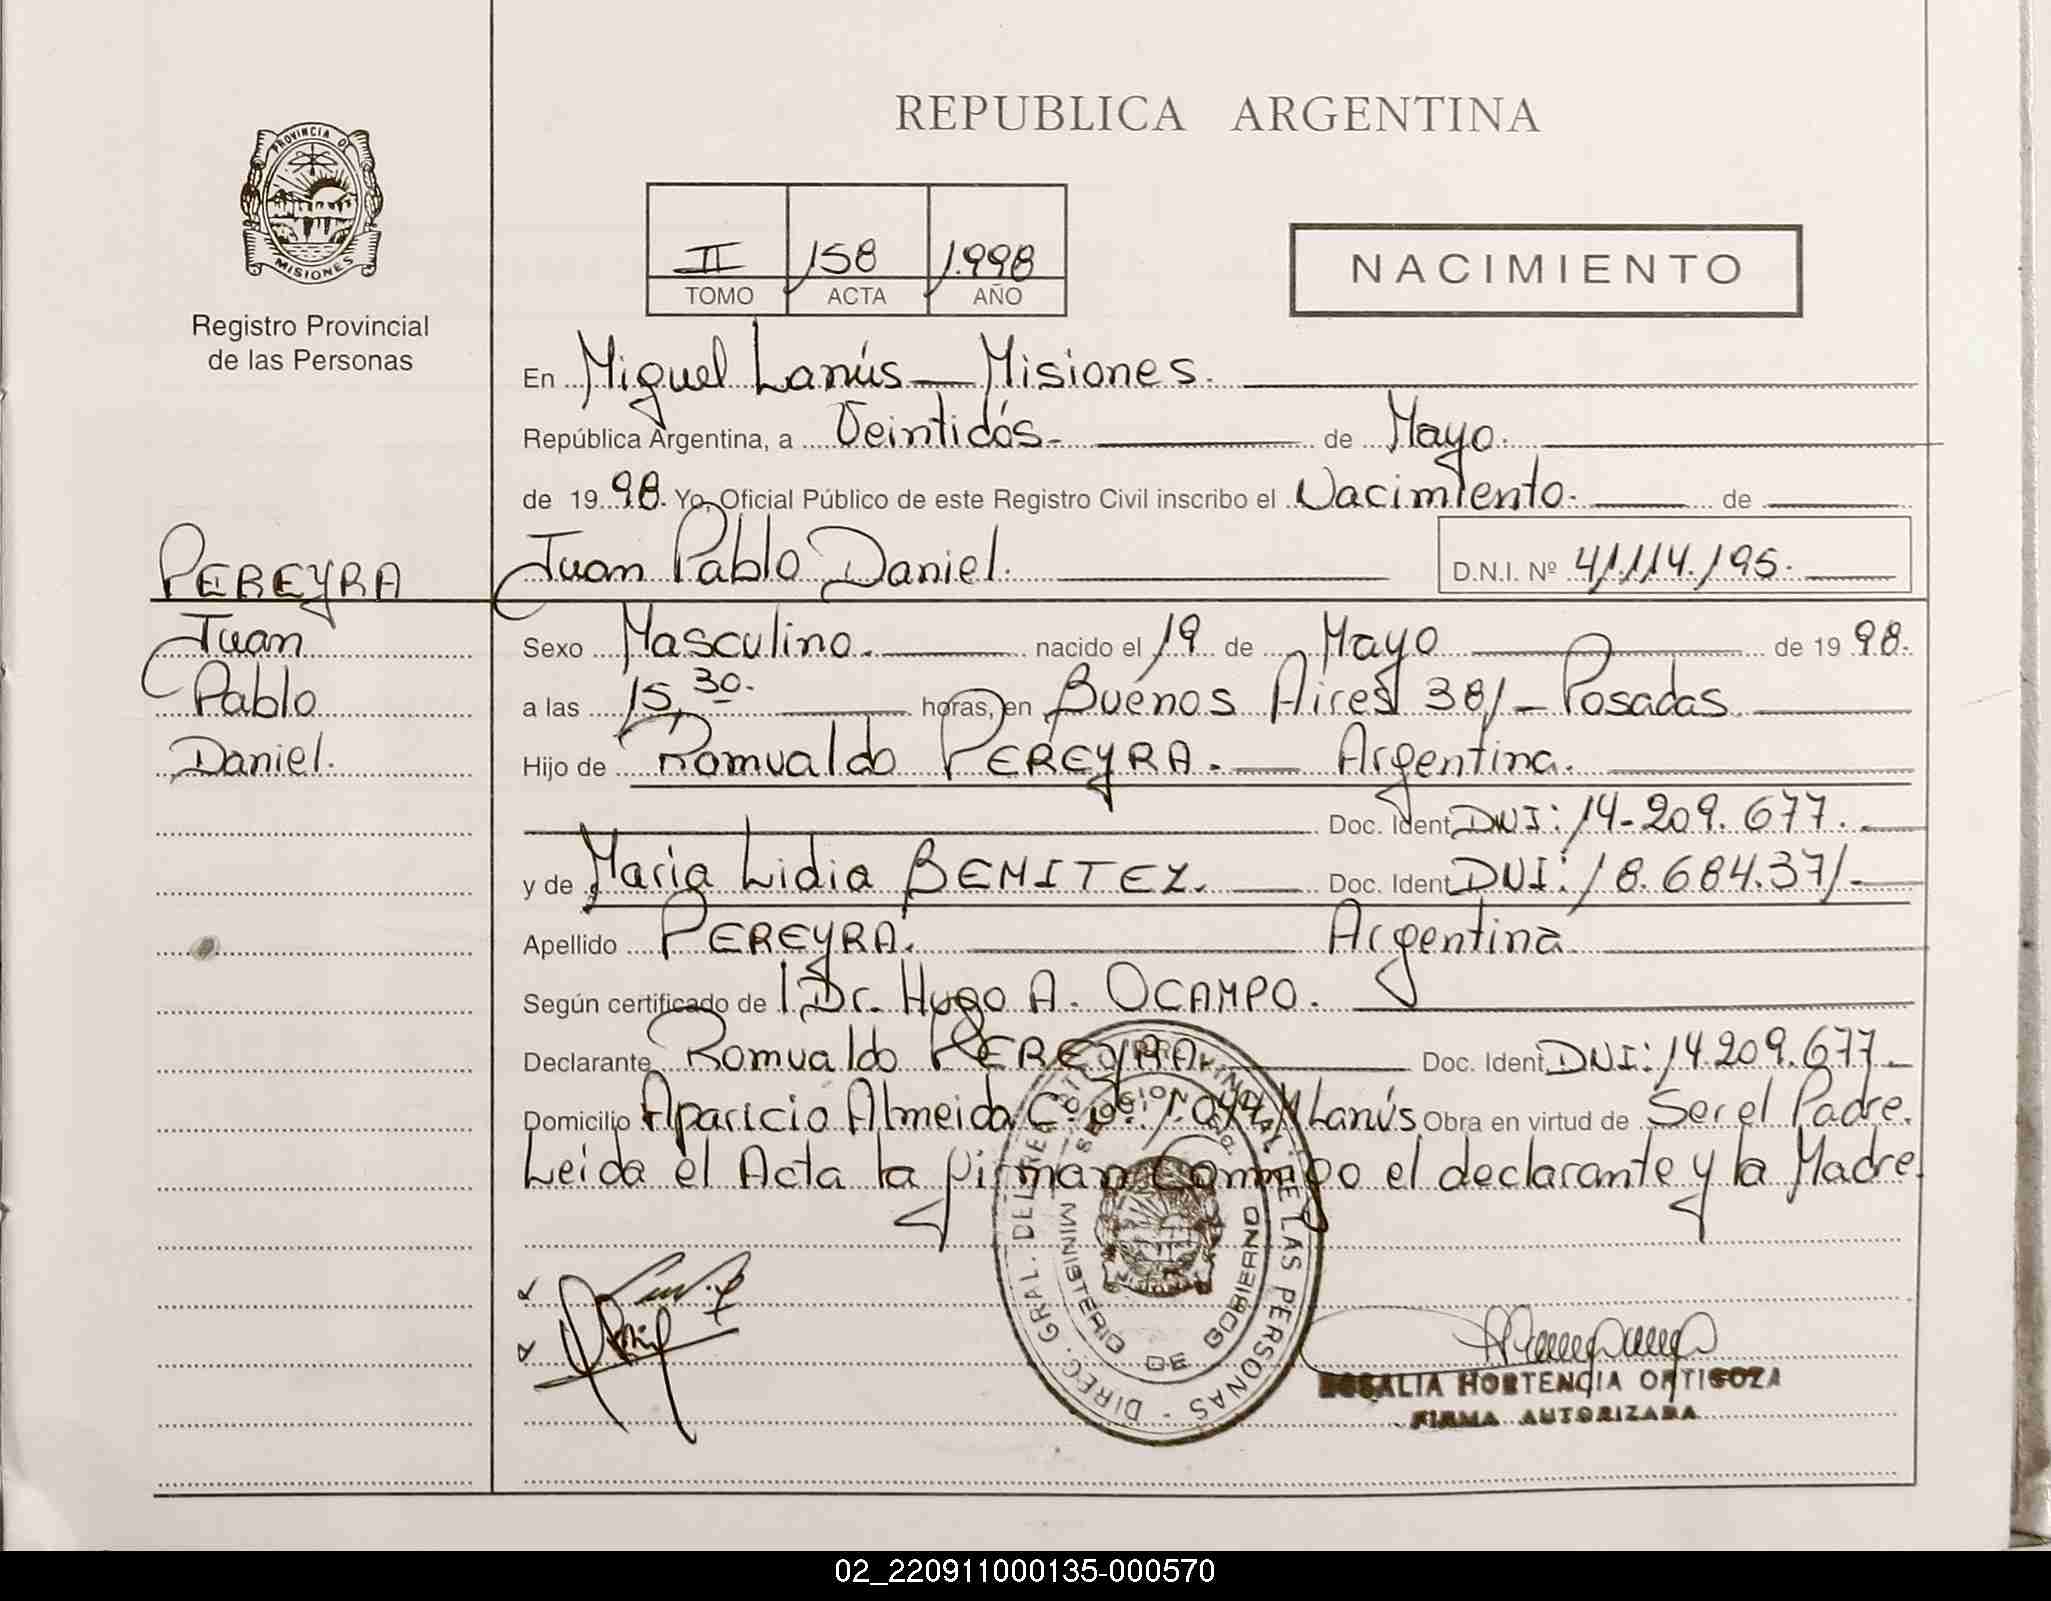 REPUBLICA ARGENTINA
PROVINCIA DE
MISIONES
Registro Provincial
de las Personas
II 158 1.998
TOMO ACTA AÑO
NACIMIENTO
En Miguel Lanús - Misiones.
República Argentina, a Veintidós - de Mayo.
de 19 98. Yo, Oficial Público de este Registro Civil inscribo el Nacimiento. de
PEREYRA
Juan
Pablo
Daniel.
Juan Pablo Daniel. D.N.I. Nº 41.114.195.
Sexo Masculino. nacido el 19 de Mayo de 19 98.
a las 15,30. horas, en Buenos Aires 381 - Posadas.
Hijo de Romualdo PEREYRA. - Argentina.
Doc. Ident DNI: 14-209.677.
y de María Lidia BENITEZ. Doc. Ident DNI: 18.684.371-
Apellido PEREYRA. Argentina
Según certificado de Dr. Hugo A. OCAMPO.
Declarante Romualdo PEREYRA Doc. Ident DNI: 14.209.677.
Domicilio Aparicio Almeida M Lanús Obra en virtud de Ser el Padre.
Leida el Acta la firman Conmigo el declarante y la Madre.
DIREC. GRAL. DEL REG PROVINCIAL DE LAS PERSONAS
MINISTERIO DE GOBIERNO
ROSALIA HORTENCIA ORTIGOZA
FIRMA AUTORIZADA
02_220911000135-000570